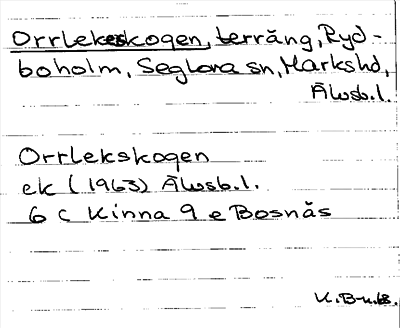 Orrlekskogen, terräng, Ryd-
boholm, Seglora sn, Markshd,
Älvsb.l.
Orrlekskogen
ek (1963) Älvsb.l.
6 C Kinna 9 e Bosnäs